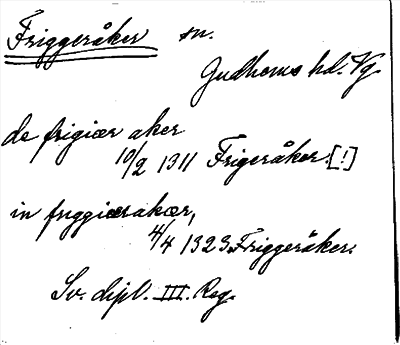 Friggeråker sn.
Gudhems hd. Vg.
de frigiær aker
10/2 1311 Frigeråker.[!]
in friggiæræakær,
4/4 1323 Friggeråker.
Sv. dipl. III. Reg.